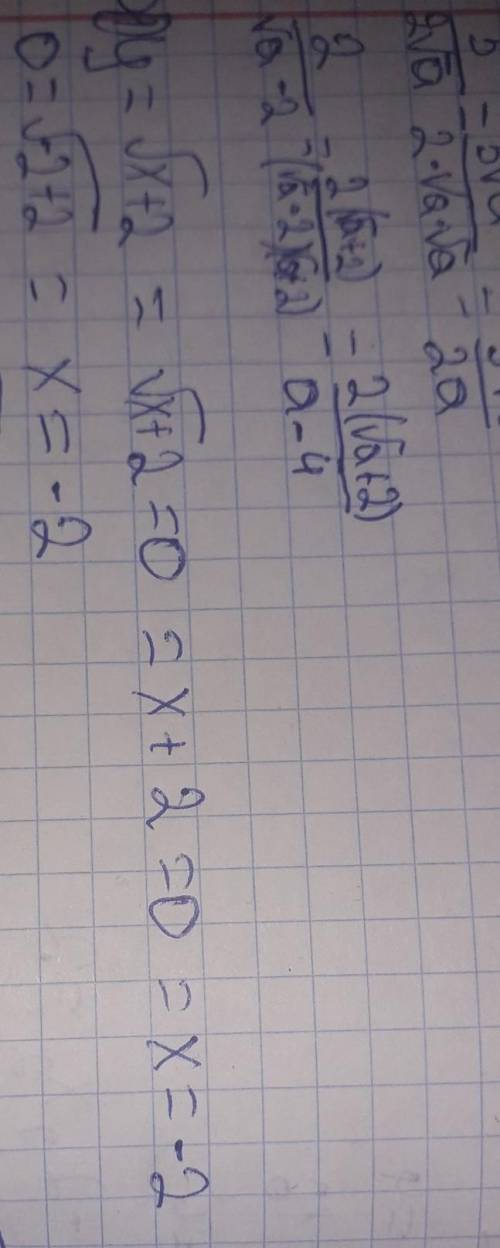 2√a 2·√a·√a 2a
2/(√a-2) = 2(√a+2)/((√a-2)(√a+2)) = 2(√a+2)/(a-4)
y = √x+2 = √x+2 = 0 = x + 2 = 0 = x = -2
0 = √-2+2 = x = -2